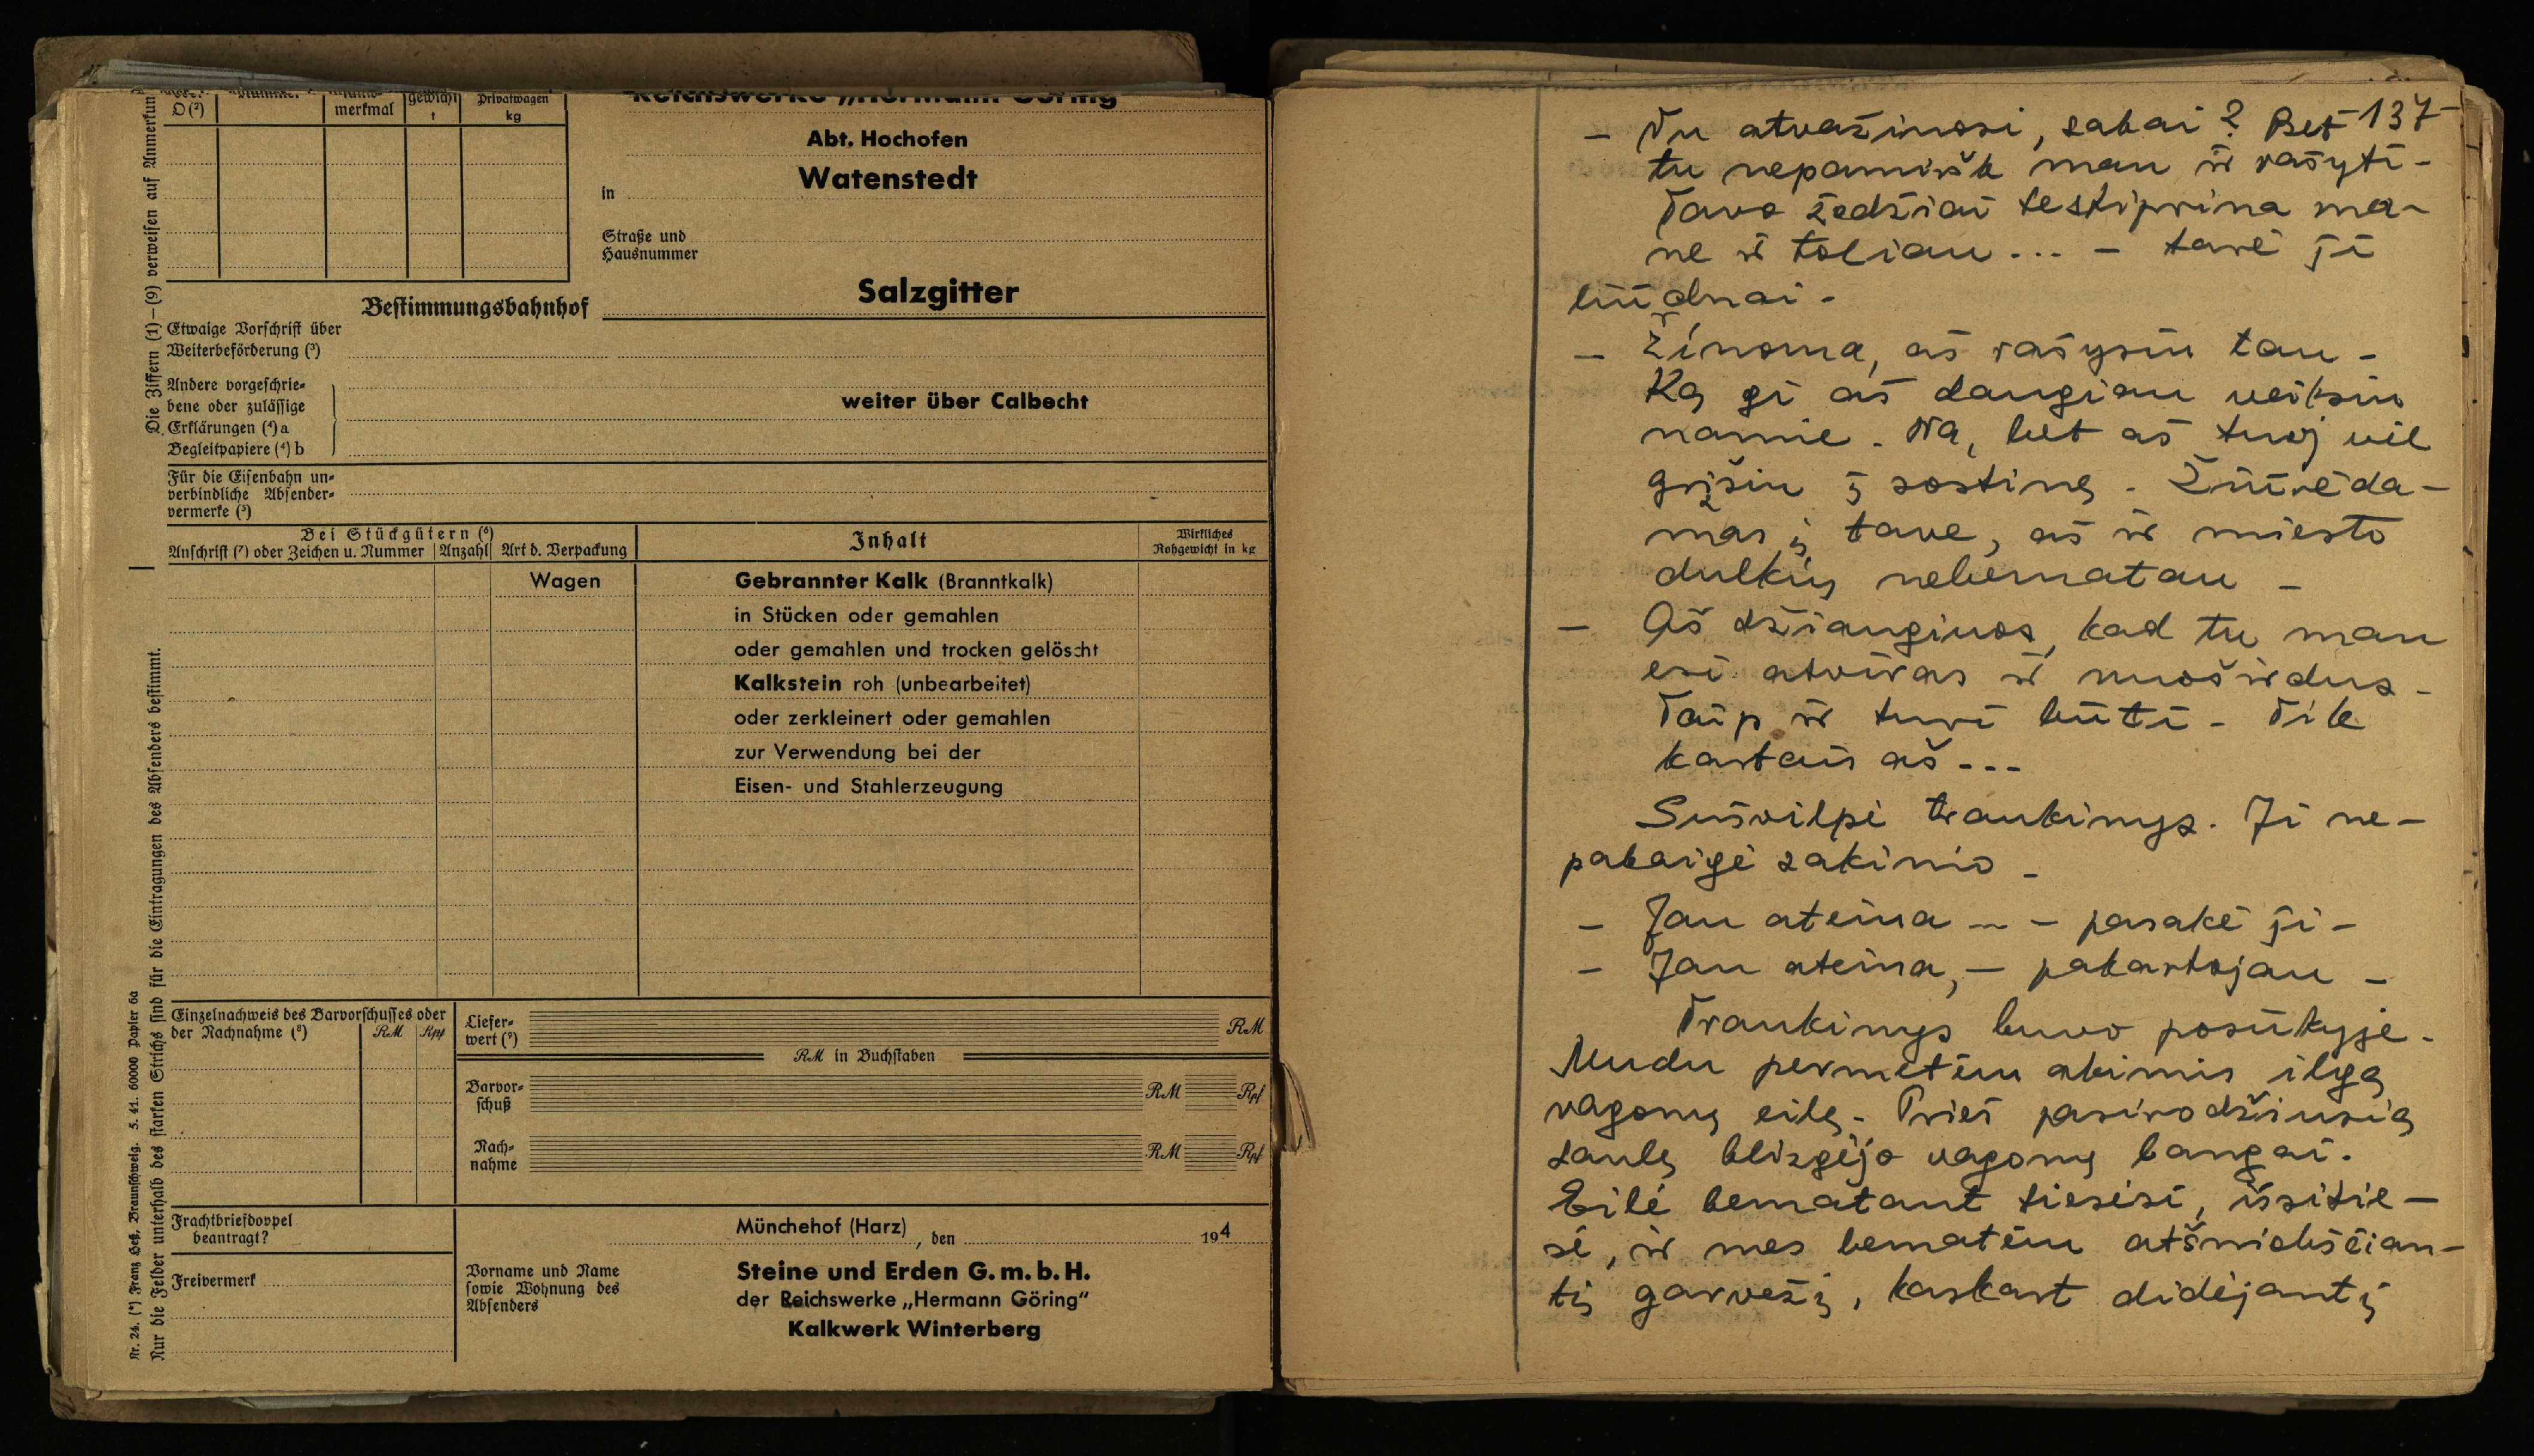 D (²)
merkmal
gewicht
t
Privatwagen
kg
Reichswerke „Hermann Göring
Abt. Hochofen
in Watenstedt
Straße und
Hausnummer
Bestimmungsbahnhof Salzgitter
Etwaige Vorschrift über
Weiterbeförderung (³)
Andere vorgeschrie-
bene oder zulässige
Erklärungen (⁴) a
Begleitpapiere (⁴) b
weiter über Calbecht
Für die Eisenbahn un-
verbindliche Absender-
vermerke (⁵)
Bei Stückgütern (⁶)
Anschrift (⁷) oder Zeichen u. Nummer Anzahl Art d. Verpackung
Inhalt
Wirkliches
Rohgewicht in kg
Wagen Gebrannter Kalk (Branntkalk)
in Stücken oder gemahlen
oder gemahlen und trocken gelöscht
Kalkstein roh (unbearbeitet)
oder zerkleinert oder gemahlen
zur Verwendung bei der
Eisen- und Stahlerzeugung
Einzelnachweis des Barvorschusses oder
der Nachnahme (⁸) RM Rpf
Liefer-
wert (⁹) RM
RM in Buchstaben
Barvor-
schuß RM Rpf
Nach-
nahme RM Rpf
Frachtbriefdoppel
beantragt?
Freivermerk
Münchehof (Harz) , den 194
Vorname und Name
sowie Wohnung des
Absenders
Steine und Erden G.m.b.H.
der Reichswerke „Hermann Göring"
Kalkwerk Winterberg
Die Ziffern (1)—(9) verweisen auf Anmerkun
Nur die Felder unterhalb des starken Strichs sind für die Eintragungen des Absenders bestimmt.
Nr. 24. (*) Franz Heß, Braunschweig. 5. 41. 60000 Papier 6a
137
– Tu atvažinosi, sakai? Bet
tu nepamiršk man ir rašyti.
Tavo žodžiai testiprina ma-
ne ir toliau... – tarė ji
liūdnai.
– Žinoma, aš rašysiu tau.
Ką gi aš daugiau veiksiu
namie. Na, bet aš tuoj vėl
grįšiu į sostinę. Žiūrėda-
mas į tave, aš ir miesto
dulkių nebematau.
– Aš džiaugiuos, kad tu man
esi atviras ir nuoširdus.
Taip ir turi būti. Tik
kartais aš...
Sušvilpė traukinys. Ji ne-
pabaigė sakinio.
– Jau ateina... – pasakė ji.
– Jau ateina, – pakartojau.
Traukinys buvo posūkyje.
Mudu permetėm akimis ilgą
vagonų eilę. Prieš pasirodžiusią
saulę blizgėjo vagonų langai.
Eilė bematant tiesėsi, išsitie-
sė, ir mes bematėm atšniokščian-
tį garvežį, kaskart didėjantį